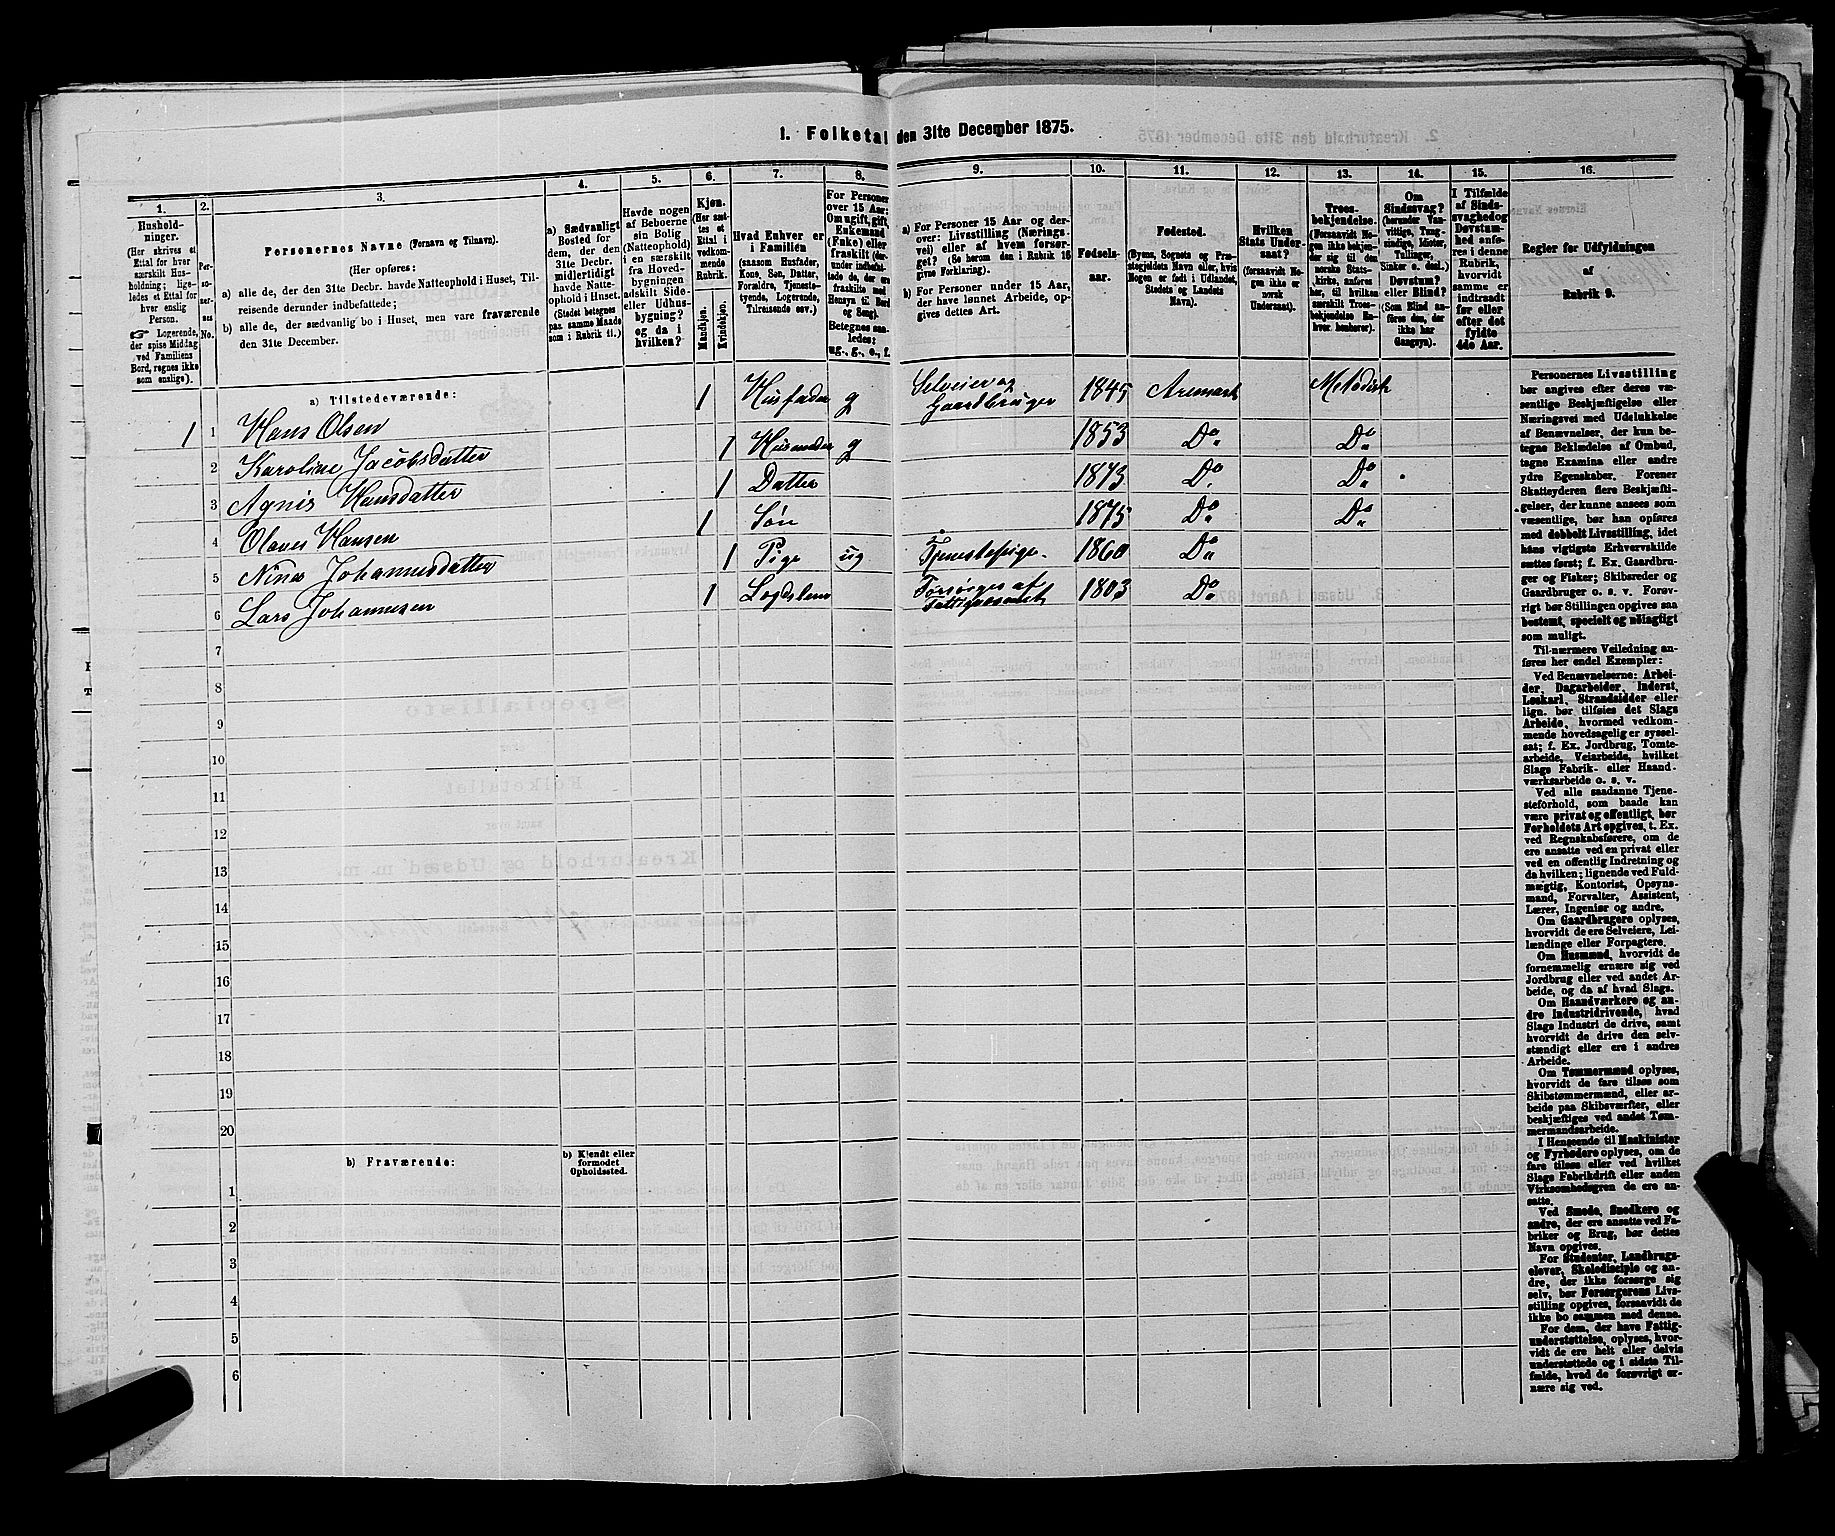 1. Folketal den 31te December 1875.
1. 2. 3. 4. 5. 6. 7. 8. 9. 10. 11. 12. 13. 14. 15. 16.
Husholdninger.
(Her skrives et Ettal for hver særskilt Husholdning; ligeledes et Ettal for hver enslig Person.
☞ Logerende, der spise Middag ved Familiens Bord, regnes ikke som enslige).
Personernes No.
Personernes Navne (Fornavn og Tilnavn).
(Her opføres:
a) alle de, der den 31te Decbr. havde Natteophold i Huset, Tilreisende derunder indbefattede;
b) alle de, der sædvanlig bo i Huset, men vare fraværende den 31te December.
a) Sædvanligt Bosted for dem, der den 31te Decbr. midlertidigt havde Natteophold i Huset. (Stedet betegnes paa samme Maade som i Rubrik 11.)
Havde nogen af Beboerne sin Bolig (Natteophold) i en særskilt fra Hovedbygningen adskilt Side- eller Udhusbygning? og da i hvilken?
Kjøn. (Her sættes et Ettal i vedkommende Rubrik.
Mandkjøn. Kvindekjøn.
Hvad Enhver er i Familien
(saasom Husfader, Kone, Søn, Datter, Forældre, Tjenestetyende, Logerende, Tilreisende osv.)
For Personer over 15 Aar: Om ugift, gift, Enkemand (Enke) eller fraskilt (derunder indbefattede, de, der ere fraskilte med Hensyn til Bord og Seng).
Betegnes saaledes: ug., g., e., f.
a) For Personer 15 Aar og derover: Livsstilling (Næringsvei) eller af hvem forsørget? (Se herom den i Rubrik 16 givne Forklaring).
b) For Personer under 15 Aar, der have lønnet Arbeide, opgives dettes Art.
Fødselsaar.
Fødested.
(Byens, Sognets og Præstegjeldets Navn eller, hvis Nogen er født i Udlandet, Stedets og Landets Navn).
Hvilken Stats Undersaat?
(forsaavidt Nogen ikke er norsk Undersaat).
Troesbekjendelse.
(Forsaavidt Nogen ikke bekjender sig til den norske Statskirke, anføres her, til hvilken særskilt Troesbekjendelse Enhver henhører).
Om Sindssvag? (herunder Vanvittige, Tungsindige, Idioter, Tullinger, Sinker o. desl.) Døvstum? eller Blind? (Som Blind anføres den, der ikke har Gangsyn).
I Tilfælde af Sindssvaghed og Døvstumhed anføres i denne Rubrik, hvorvidt samme er indtraadt før eller efter det fyldte 4de Aar.
Regler for Udfyldningen
af
Rubrik 9.
a) Tilstedeværende:
1 1 Hans Olsen 1 Husfader g Selveier og Gaardbruger 1845 Aremark Metodist
2 Karoline Jacobsdatter 1 Husmoder g 1853 Do Do
3 Agnis Hansdatter 1 Datter 1873 Do. Do
4 Olaves Hansen 1 Søn 1875 Do Do
5 Nina Johannesdatter 1 Pige ug Tjenestepige. 1860 Do
6 Lars Johannesen 1 Logdslem Forsørges af Fattigvæsenet 1803 Do
7
8
9
10
11
12
13
14
15
16
17
18
19
20
b) Fraværende:
b) Kjendt eller formodet Opholdssted.
1
2
3
4
5
6
Personernes Livsstilling
bør angives efter deres væ-
sentlige Beskjæftigelse eller
Næringsvei med Udelukkelse
af Benævnelser, der kun be-
tegne Beklædelse af Ombud,
tagne Examina eller andre
ydre Egenskaber. Forener
Skatteyderen flere Beskjæfti-
gelser, der kunne ansees som
væsentlige, bør han opføres
med dobbelt Livsstilling, idet
hans vigtigste Erhvervskilde
sættes først; f. Ex. Gaardbru-
ger og Fisker; Skibsreder og
Gaardbruger o. s. v. Forøv-
rigt bør Stillingen opgives saa
bestemt, specielt og nøiagtigt
som muligt.
Til nærmere Veiledning an-
føres her endel Exempler:
Ved Benævnelserne: Arbei-
der, Dagarbeider, Inderst,
Løskarl, Strandsidder eller
lign. bør tilføies det Slags
Arbeide, hvormed vedkom-
mende hovedsagelig er syssel-
sat; f. Ex. Jordbrug, Tomte-
arbeide, Veiarbeide, hvilket
Slags Fabrik- eller Haand-
værksarbeide o. s. v.
Ved alle saadanne Tjene-
steforhold, som baade kan
være privat og offentligt, bør
Forholdets Art opgives, t. Ex.
ved Regnskabsførere, om de
ere ansatte ved en privat eller
ved en offentlig Indretning og
da hvilken; lignende ved Fuld-
mægtig, Kontorist, Opsyns-
mand, Forvalter, Assistent,
Lærer, Ingeniør og andre.
Om Gaardbrugere oplyses,
hvorvidt de ere Selveiere, Lei-
lændinge eller Forpagtere.
Om Husmænd, hvorvidt de
fornemmelig ernære sig ved
Jordbrug eller ved andet Ar-
beide, og da af hvad Slags.
Om Haandværkere og an-
dre Industridrivende, hvad
Slags Industri de drive, samt
hvorvidt de drive den selv-
stændigt eller ere i andres
Arbeide.
Om Tømmermænd oplyses,
hvorvidt de fare tilsøs som
Skibstømmermænd, eller ar-
beide paa Skibsværfter, eller
beskjæftiges ved andet Tøm-
mermandsarbeide.
I Henseende til Maskinister
og Fyrbødere oplyses, om de
fare tilsøs eller ved hvilket
Slags Fabrikdrift eller anden
Virksomhedsgren de ere an-
satte.
Ved Smede, Snedkere og
andre, der ere ansatte ved Fa-
briker og Brug, bør dettes
Navn opgives.
For Studenter, Landbrugs-
elever, Skoledisciple og an-
dre, der ikke forsørge sig
selv, bør Forsørgerens Livs-
stilling opgives, forsaavidt de
ikke bo sammen med denne.
For dem, der have Fattig-
understøttelse, oplyses, hvor-
vidt de ere helt eller delvis
understøttede og i sidste Til-
fælde, hvad de forøvrigt er-
nære sig ved.